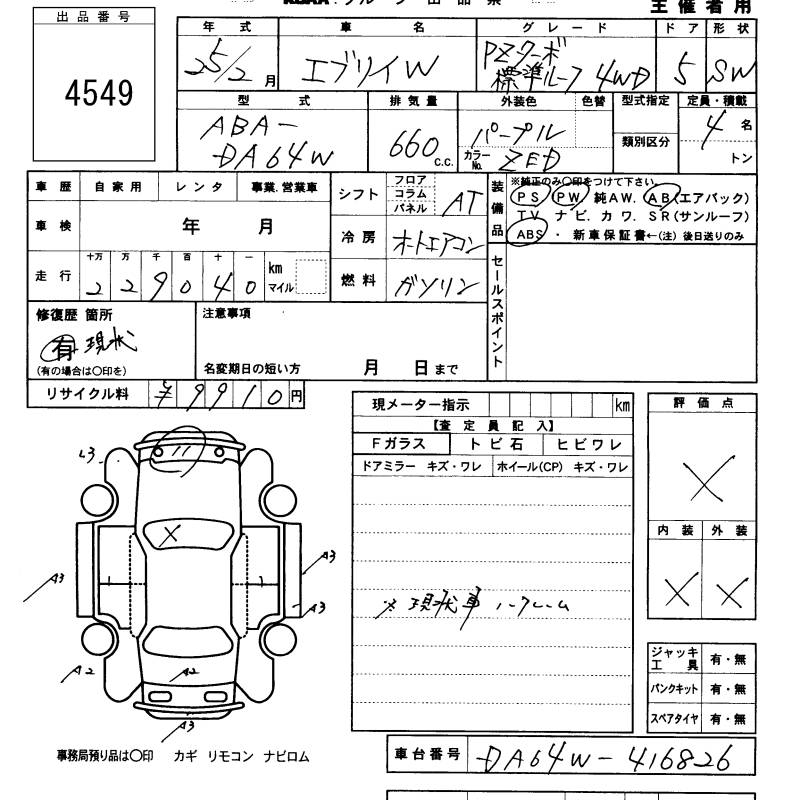 主催者用
出品番号
4549
年式 車名 グレード ドア 形状
25/2月 エブリイW PZターボ 標準ルーフ 4WD 5 SW
型式 排気量 外装色 色替 型式指定 定員・積載
ABA-DA64W 660 c.c. パープル 類別区分 4名
カラーNo. ZED トン
車歴 自家用 レンタ 事業.営業車
シフト フロア コラム パネル AT
装備品 ※純正のみ○印をつけて下さい。
PS PW 純AW. AB(エアバック)
TV ナビ. カワ. SR(サンルーフ)
ABS ・新車保証書←(注)後日送りのみ
車検 年 月
冷房 オートエアコン
走行 十万 万 千 百 十 一 km マイル
229040
燃料 ガソリン
セールスポイント
修復歴 箇所
有 現状
(有の場合は○印を)
注意事項
名変期日の短い方 月 日まで
リサイクル料 ¥9910円
現メーター指示 km
【査定員記入】
Fガラス トビ石 ヒビワレ
ドアミラー キズ・ワレ ホイール(CP) キズ・ワレ
※現状車 ノークレーム
評価点
X
内装 外装
X X
ジャッキ工具 有・無
パンクキット 有・無
スペアタイヤ 有・無
A3
X
A3
A3
A3
A2
A2
A3
事務局預り品は○印 カギ リモコン ナビロム
車台番号 DA64W-416826